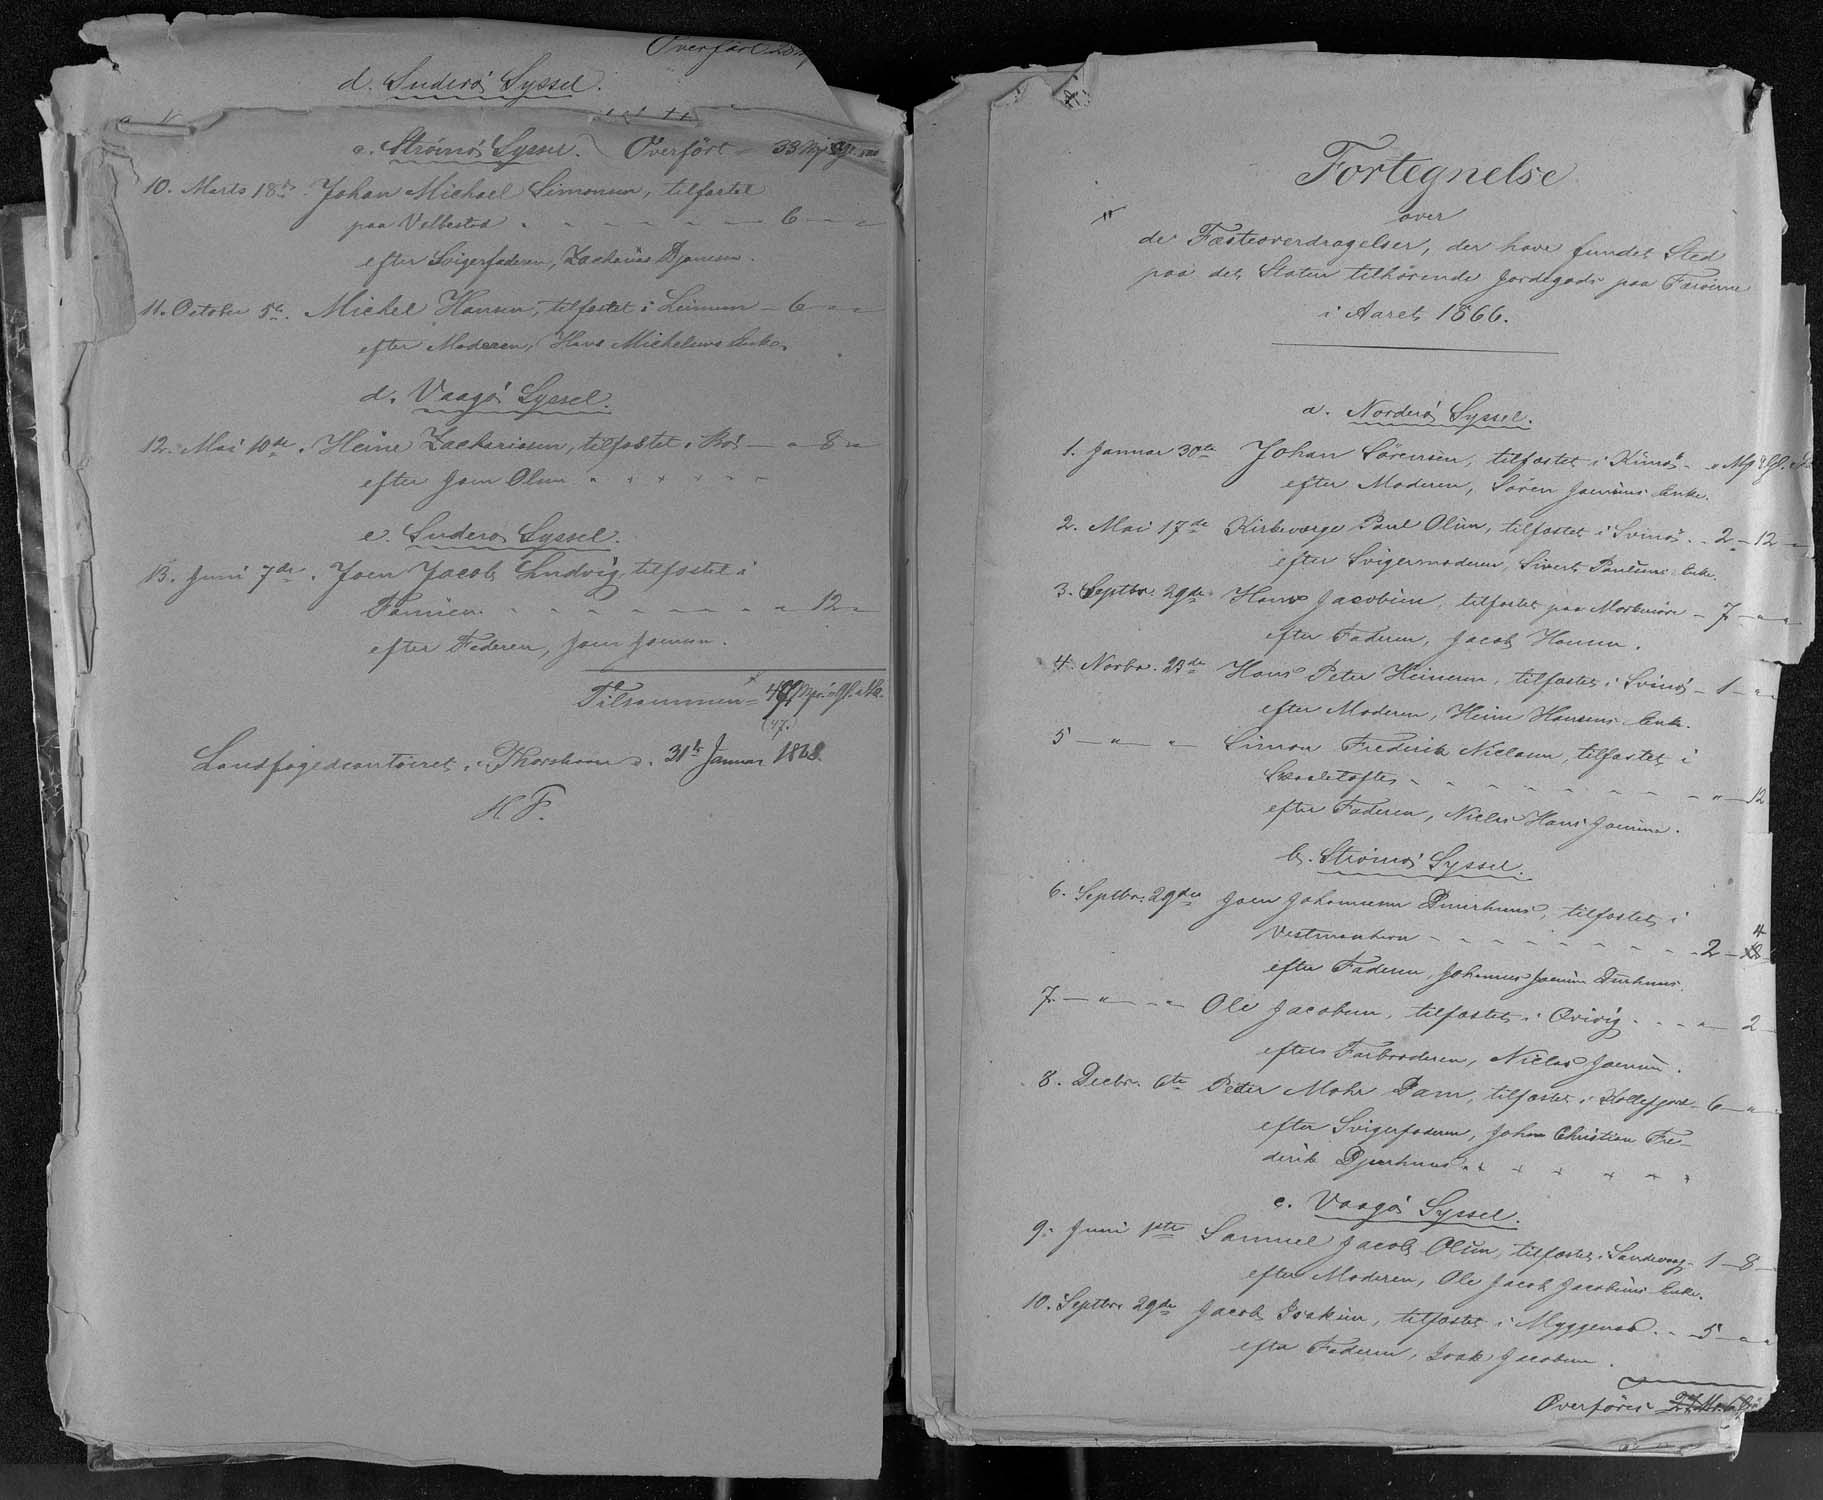 Overført
d. Suderø Syssel.
c. Strømø Syssel. Overført 33 Mk
10. Marts 18de. Johan Michael Simonsen, tilfæstet
paa Velbestad - - - - - - - 6 - "
efter Svigerfaderen, Zacharias Djonesen.
11. October 5te. Michel Hansen, tilfæstet i Leinum - 6 " "
efter Moderen, Hans Michelsens Enke.
d. Vaagø Syssel.
12. Mai 10de. Heine Zachariasen, tilfæstet i Bø - " 8 "
efter Joen Olsen " " " " "
e. Suderø Syssel.
13. Juni 7de. Joen Jacob Ludvig, tilfæstet i
Famien - - - - - - - " 12 "
efter Faderen, Joen Joensen.
Tilsammen =
(47.)
Landfogedcontoiret, i Thorshavn d. 31te Januar 1868.
H. F.
Fortegnelse
over
de Fæsteoverdragelser, der have fundet Sted
paa det Staten tilhørende Jordegods paa Færøerne
i Aaret 1866.
a. Norderø Syssel.
1. Januar 30te Johan Sørensen, tilfæstet i Kunø - " Mk
efter Moderen, Søren Joensens Enke.
2. Mai 17de Kirkeværge Paul Olsen, tilfæstet i Svinø - 2 - 12 -
efter Svigermoderen, Sivert Poulsens Enke.
3. Septbr. 29de Hans Jacobsen, tilfæstet paa Morknøre - 7 - " "
efter Faderen, Jacob Hansen.
4. Novbr. 23de Hans Peter Heinesen, tilfæstet i Svinø - 1 - " "
efter Moderen, Heine Hansens Enke.
5 - " - " Simon Frederik Niclasen, tilfæstet i
Skaaletofte - - - - - - - " - 12
efter Faderen, Niclas Hans Joensen.
b. Strømø Syssel.
6. Septbr. 29de Joen Johannesen Diurhuus, tilfæstet i
Vestmanhavn - - - - - - - 2 - 4
efter Faderen, Johannes Joensen Diurhuus.
7. - " - " Ole Jacobsen, tilfæstet i Qvivig - - - " - 2 -
efter Farbroderen, Niclas Joensen.
8. Decbr. 6te Peter Mohr Dam, tilfæstet i Kollefjord - 6 - " -
efter Svigerfaderen, Johan Christian Fre-
derik Djurhuus " " " " " "
c. Vaagø Syssel.
9. Juni 1ste Samuel Jacob Olsen, tilfæstet i Sandevaag - 1 - 8 -
efter Moderen, Ole Jacob Jacobsens Enke.
10. Septbr. 29de Jacob Isaksen, tilfæstet i Myggenæs - - 5 - " "
efter Faderen, Isak Jacobsen.
Overføres